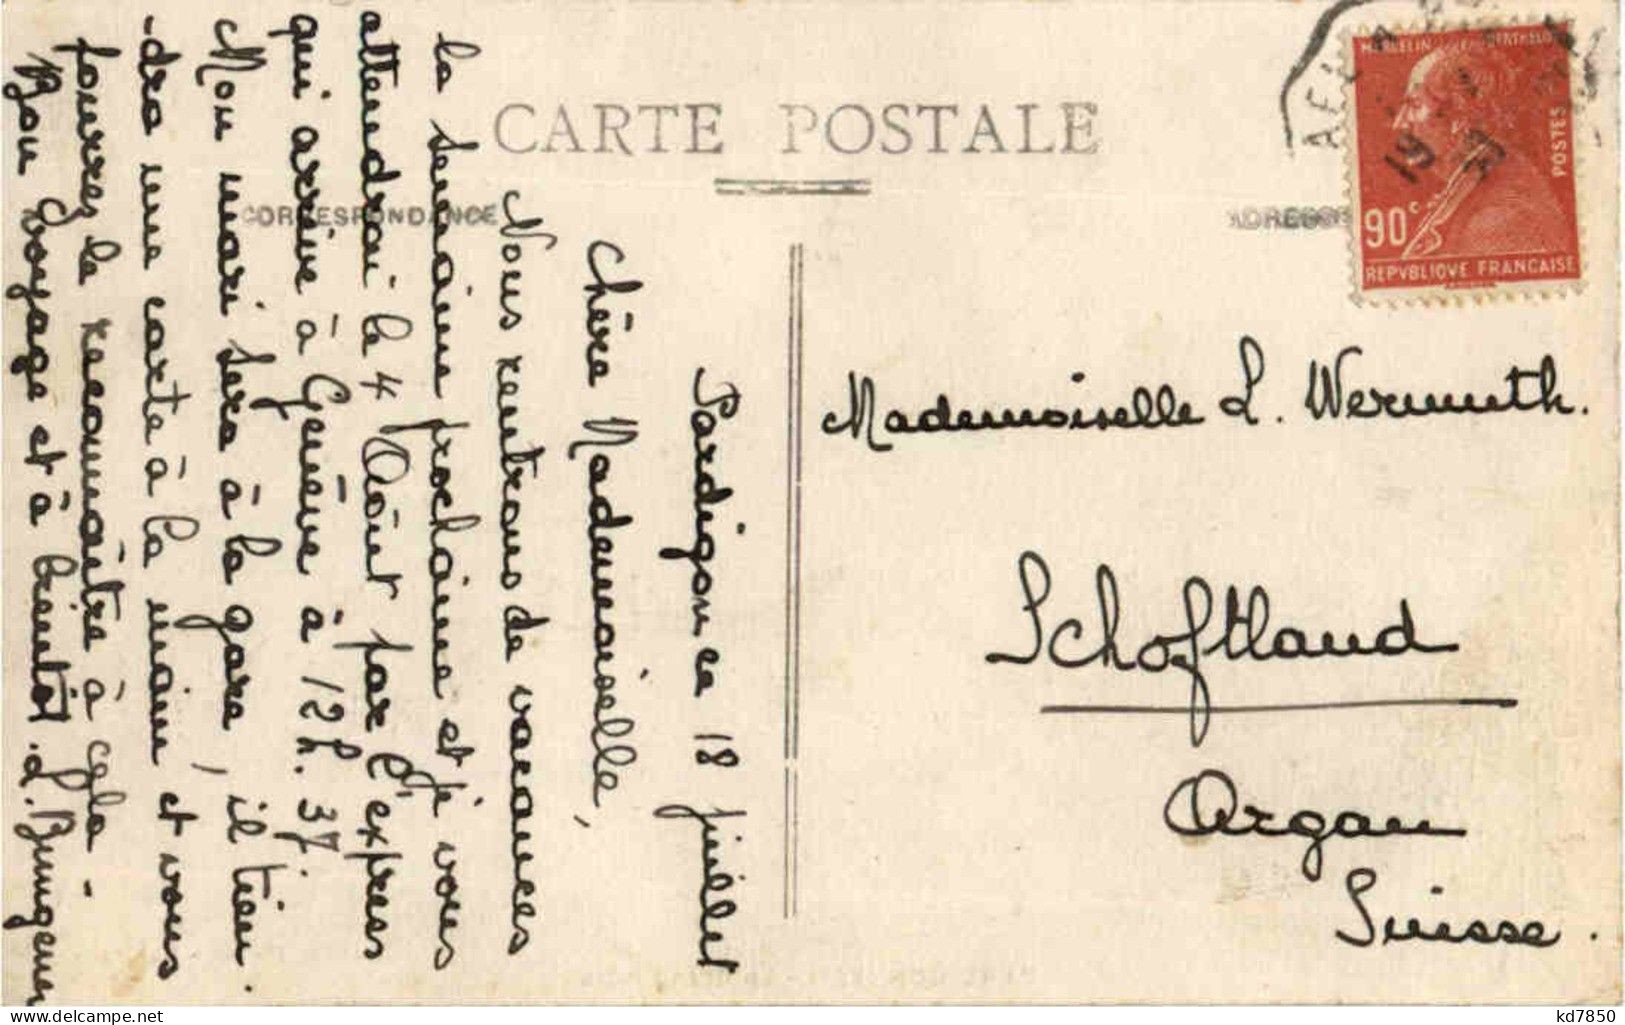 CARTE POSTALE
CORRESPONDANCE
ADRESSE
MARCELIN BERTHELOT
POSTES
90c
REPVBLIQVE FRANCAISE
Pardigon ce 18 juillet
Chère Mademoiselle,
Nous rentrons de vacances
la semaine prochaine et je vous
attendrai le 4 Août par l'express
qui arrive à Genève à 12 h. 37.
Mon mari sera à la gare, il tien-
-dra une carte à la main et vous
pourrez le reconnaître à cela -
Bon voyage et à bientôt. L. Bungener
Mademoiselle L. Wermuth.
Schoftland
Argau
Suisse.
kd7850